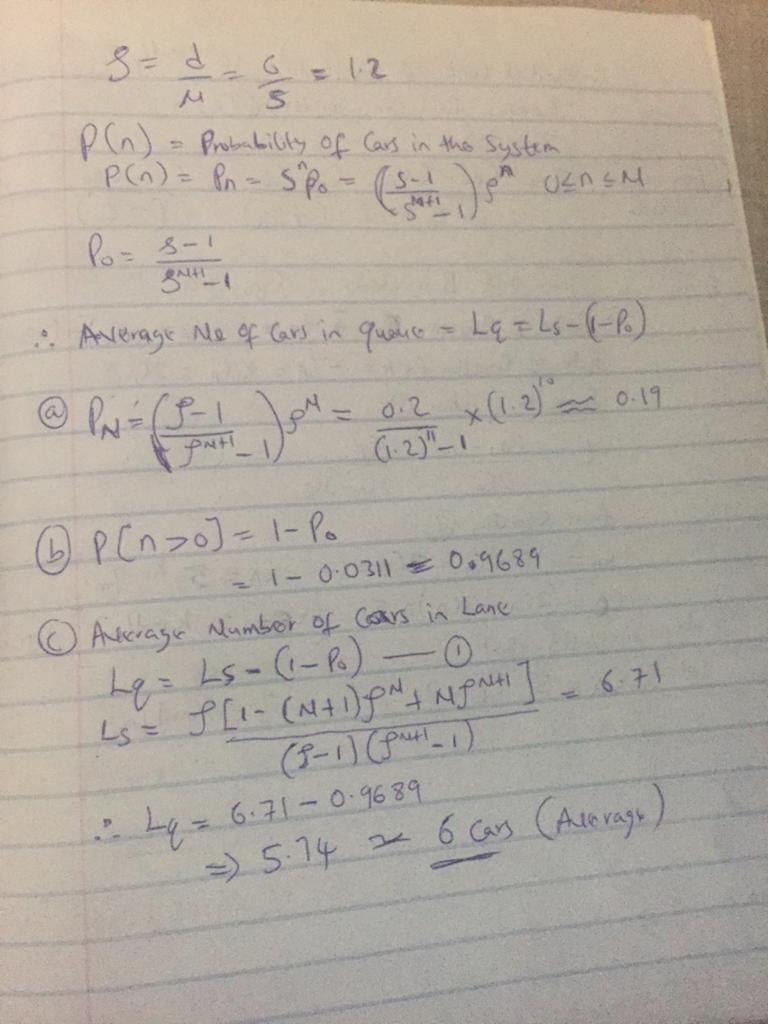 ρ = λ/μ = 6/5 = 1.2
P(n) = Probability of Cars in the System
P(n) = Pn = ρ^n P0 = ((ρ-1)/(ρ^(M+1)-1)) ρ^n 0≤n≤M
P0 = (ρ-1)/(ρ^(N+1)-1)
∴ Average No of Cars in queue = Lq = Ls-(1-P0)
(a) PN = ((ρ-1)/(ρ^(N+1)-1)) ρ^N = 0.2/((1.2)^11-1) × (1.2)^10 ≈ 0.19
(b) P[n>0] = 1-P0
= 1-0.0311 = 0.9689
(c) Average Number of Cars in Lane
Lq = Ls-(1-P0) — (1)
Ls = ρ[1-(N+1)ρ^N + Nρ^(N+1)]/((ρ-1)(ρ^(N+1)-1)) = 6.71
∴ Lq = 6.71-0.9689
⇒ 5.74 ≈ 6 Cars (Average)